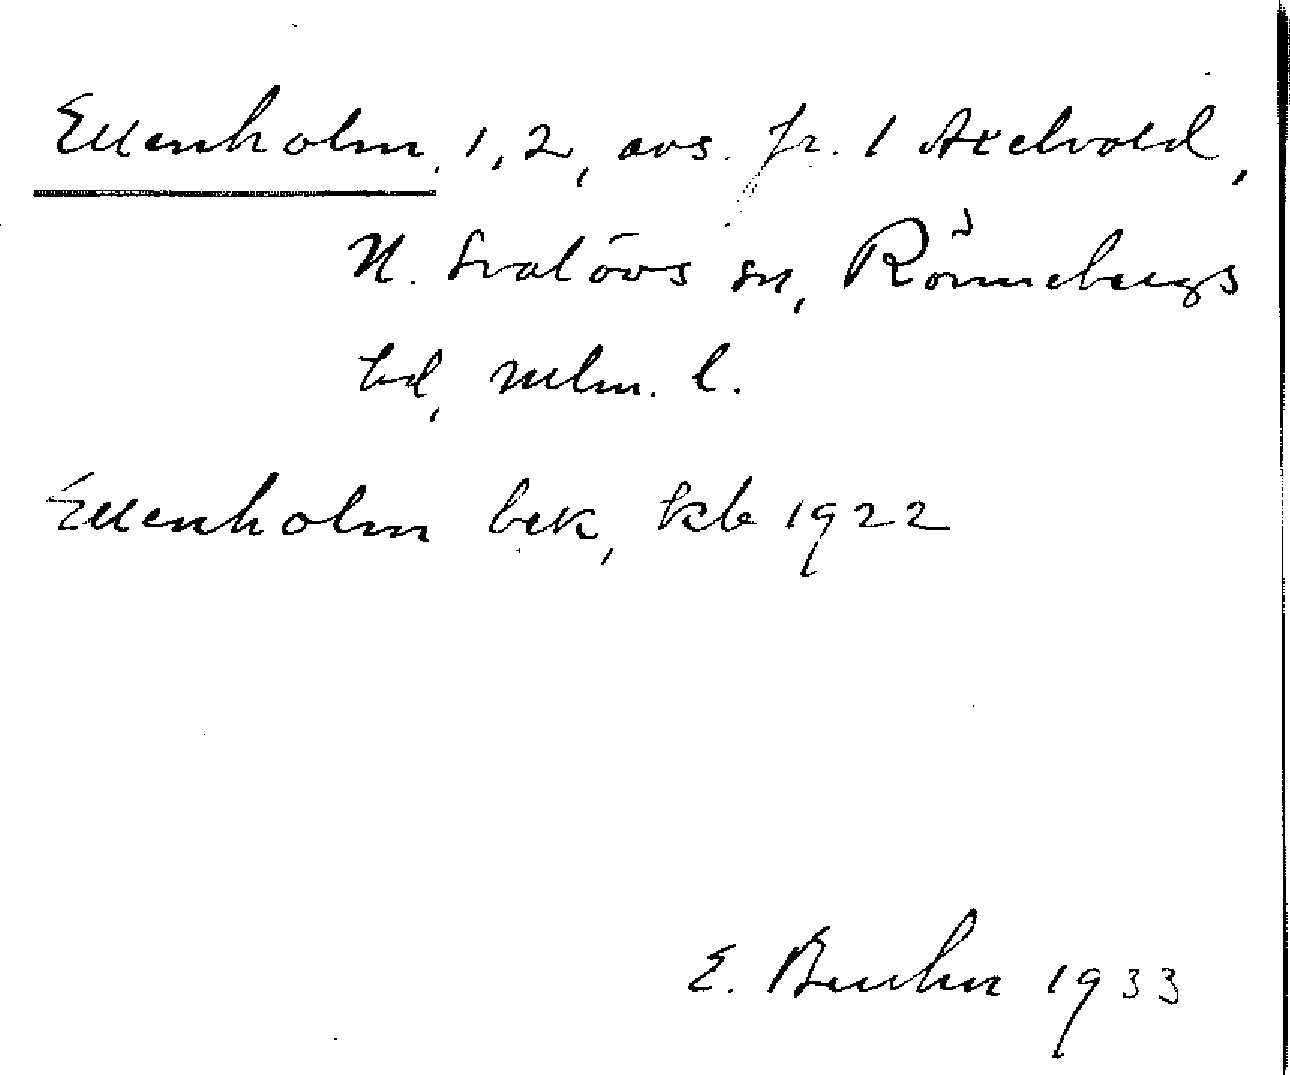 Ellenholm, 1, 2, avs. fr. 1 Axelvold,
N. Svalövs sn, Rönnebergs
hd, Mlm. l.
Ellenholm bek, kb 1922
E. Bruhn 1933